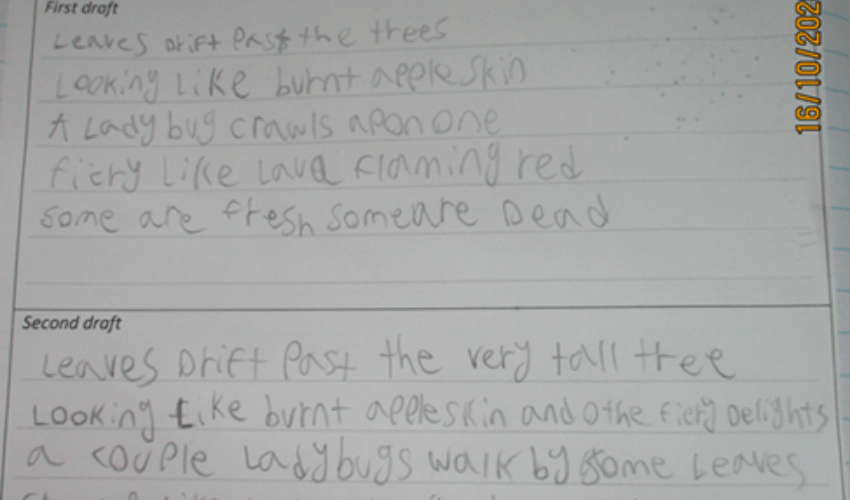 First draft
16/10/202
Leaves Drift Past the trees
Looking Like burnt apple skin
A Lady bug crawls apon one
fiery like Lava flaming red
some are fresh some are Dead
Second draft
Leaves Drift Past the very tall tree
Looking Like burnt apple skin and othe fiery Delights
a couple Ladybugs walk by some Leaves